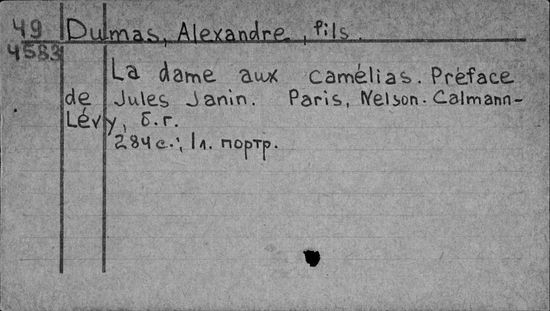 49 Dumas, Alexandre, fils.
4583
La dame aux camélias. Préface
de Jules Janin. Paris, Nelson-Calmann-
Lévy, б.г.
284 с.; 1 л. портр.